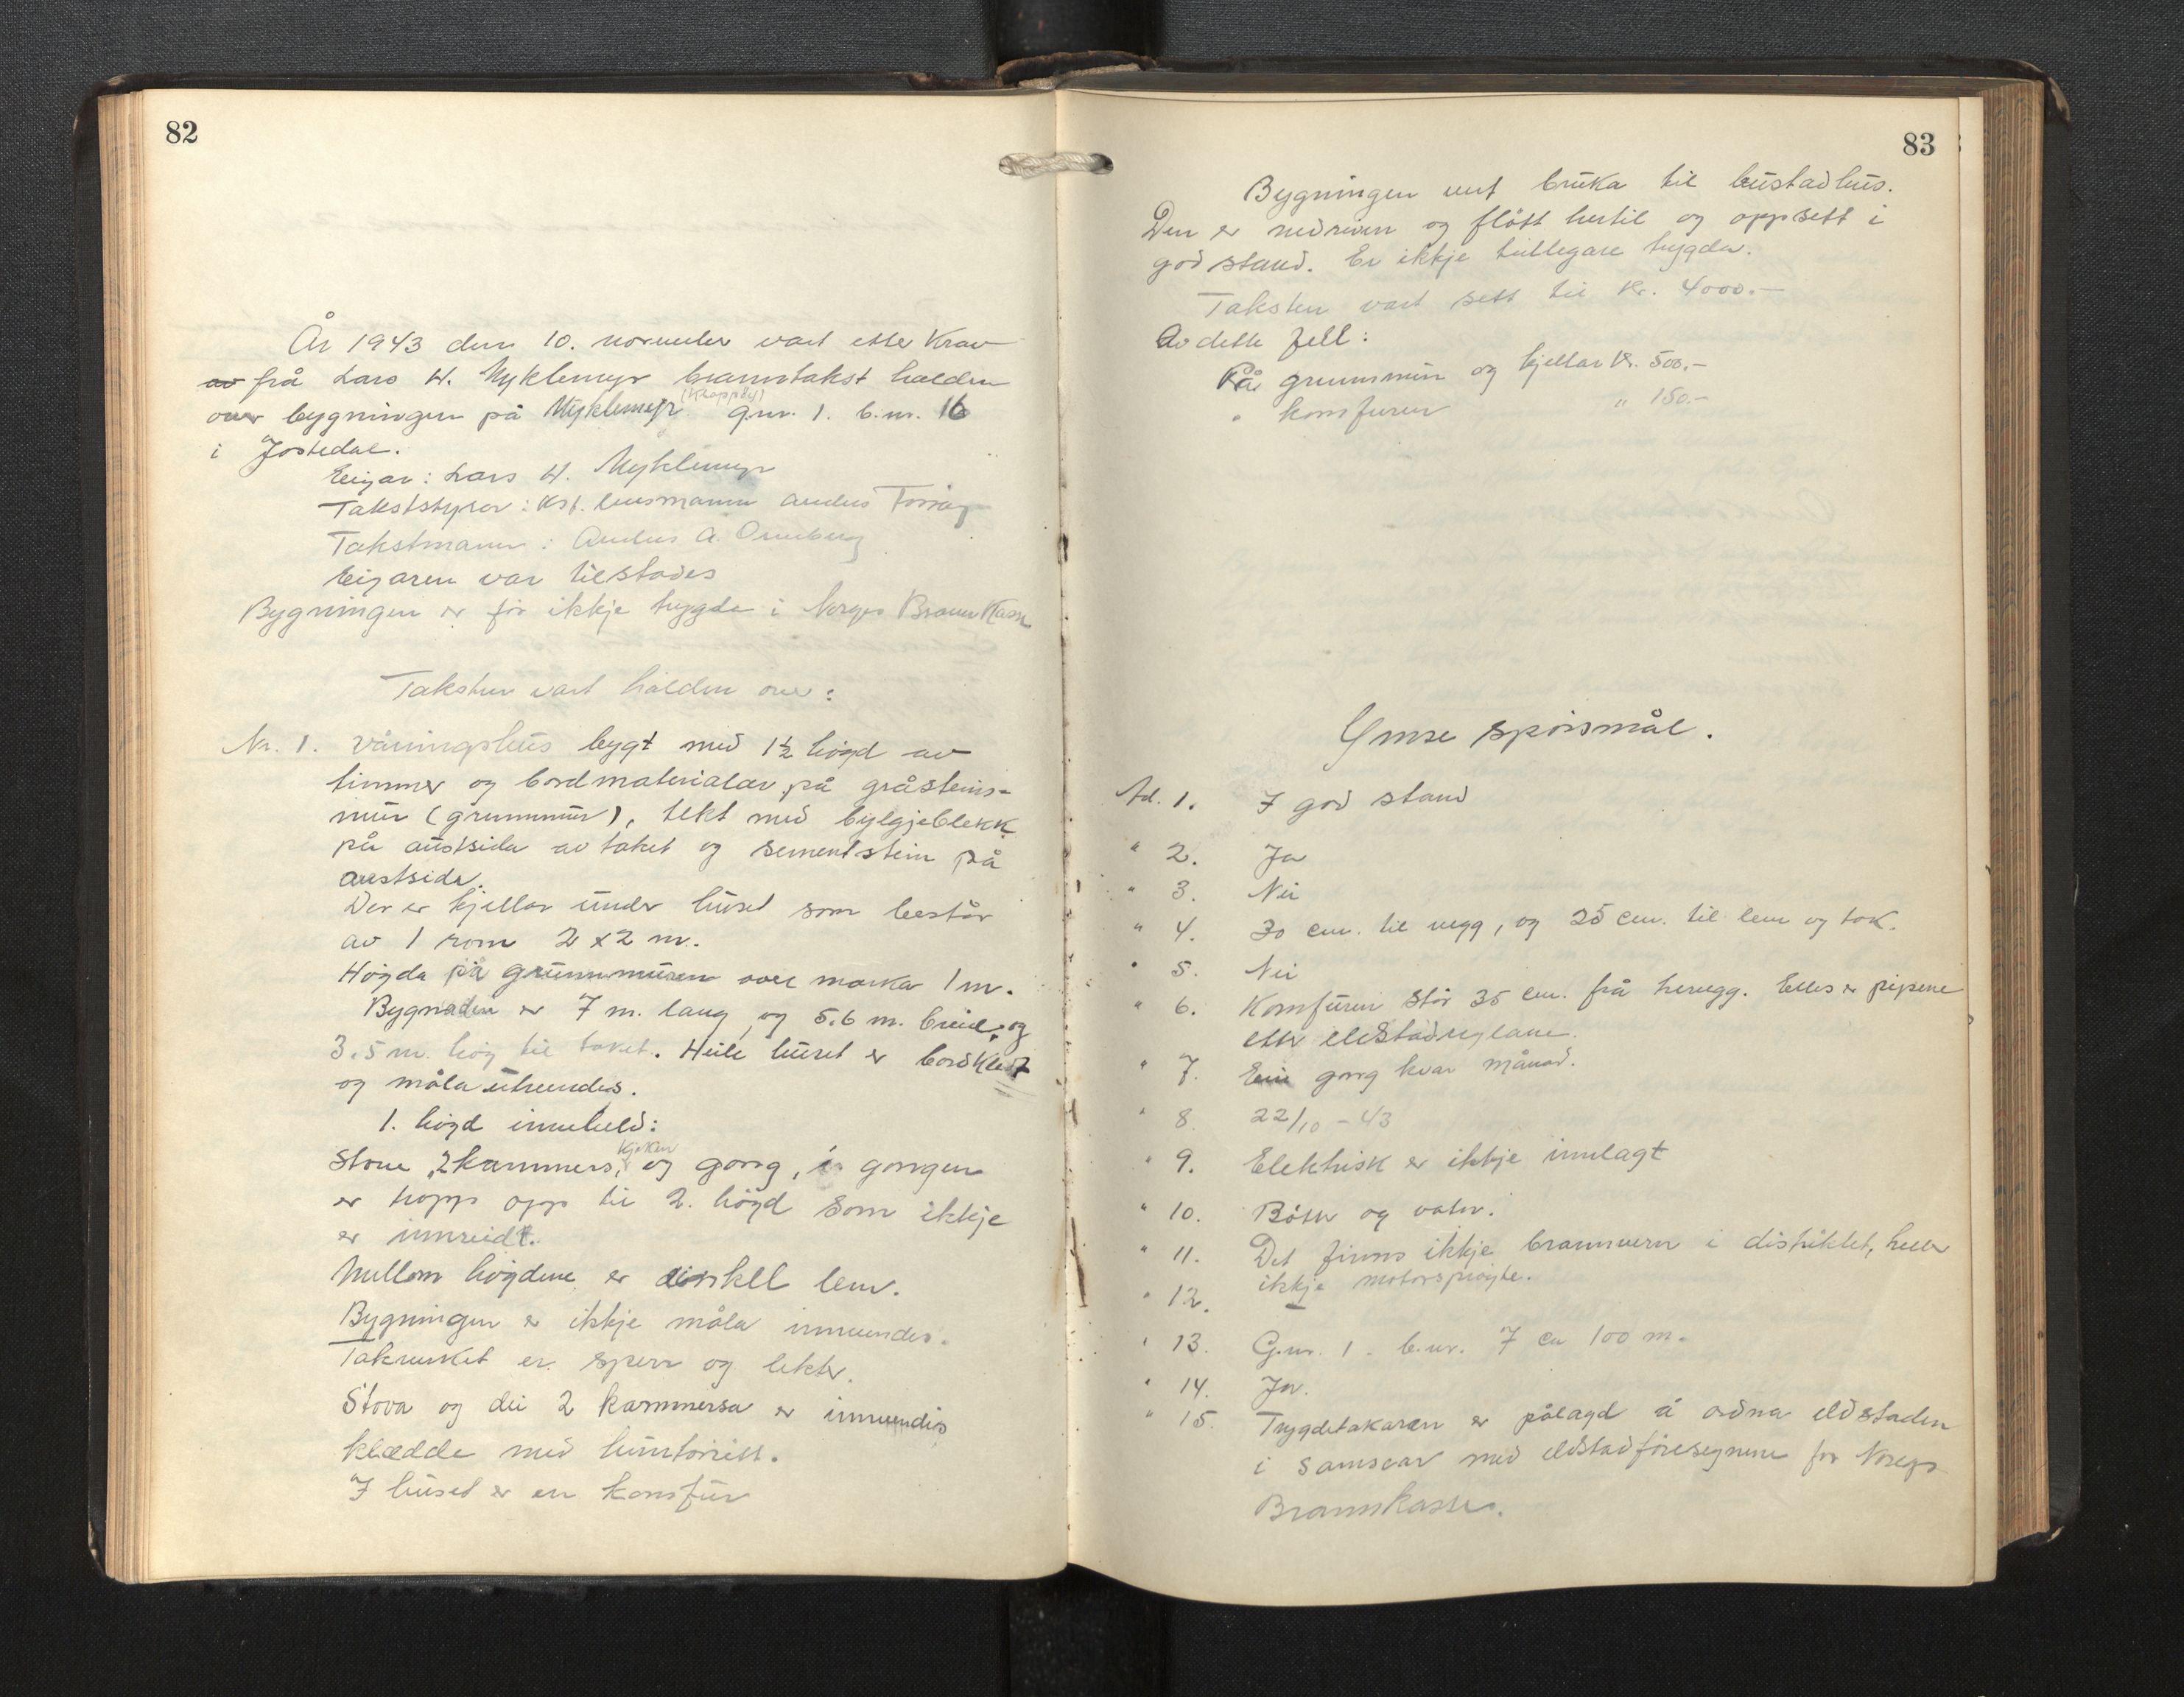 82
År 1943 den 10. november vart etter krav
av frå Lars H. Myklemyr branntakst halden
over bygningen på Myklemyr (Kroppöy) gnr. 1. b.nr. 16
i Jostedal.
Eigar: Lars H. Myklemyr
Takststyrar: Kst. lensmann Anders
Takstmann: Anders A. Ormberg
Eigaren var tilstades
Bygningen er för ikkje trygda i Norges Brannkasse
Taksten vart halden over:
Nr. 1. Våningshus bygt med 1½ högd av
timmer og bordmaterialar på gråsteins-
mur (grunnmur), tekt med bylgjeblekk
på austsida av taket og sementstein på
austsida.
Der er kjellar under huset som består
av 1 rom 2 x 2 m.
Högda på grunnmuren over marka 1 m.
Bygnaden er 7 m. lang, og 5.6 m. breid, og
3.5 m. hög til taket. Heile huset er bordkledt
og måla utvendes.
1. högd inneheld:
Stove, 2 kammers, kjöken og gong, i gongen
er tropp opp til 2. högd som ikkje
er innreidt.
Mellom högdene er enkelt lem.
Bygningen er ikkje måla innvendes.
Takverket er sperr og lekter.
Stova og dei 2 kammersa er innvendes
klædde med
I huset er en komfur
83
Bygningen vert bruka til bustadhus.
Den er nedriven og flött hertil og oppsett i
god stand. Er ikkje tidlegare trygda.
Taksten vart sett til kr. 4000.-
Av dette fell:
På grunnmur og kjellar kr. 500.-
" komfuren " 150.-
Ymse spörsmål.
Ad. 1. I god stand
" 2. Ja
" 3. Nei
" 4. 30 cm. til vegg, og 25 cm. til lem og tak.
" 5. Nei
" 6. Komfuren står 35 cm. frå trevegg. Elles er pipene
etter eldstadreglane.
" 7. Ein gong kvar månad.
" 8. 22/10 - 43
" 9. Elektrisk er ikkje innlagt
" 10. Bötter og vatn.
" 11. Det finns ikkje brannvern i distriktet, heller
ikkje motorspröyte.
" 12. –
" 13. G.nr. 1. b.nr. 7 ca 100 m.
" 14. Ja.
" 15. Trygdetakaren er pålagd å ordna eldstaden
i samsvar med eldstadföresegnene for Noregs
Brannkasse.